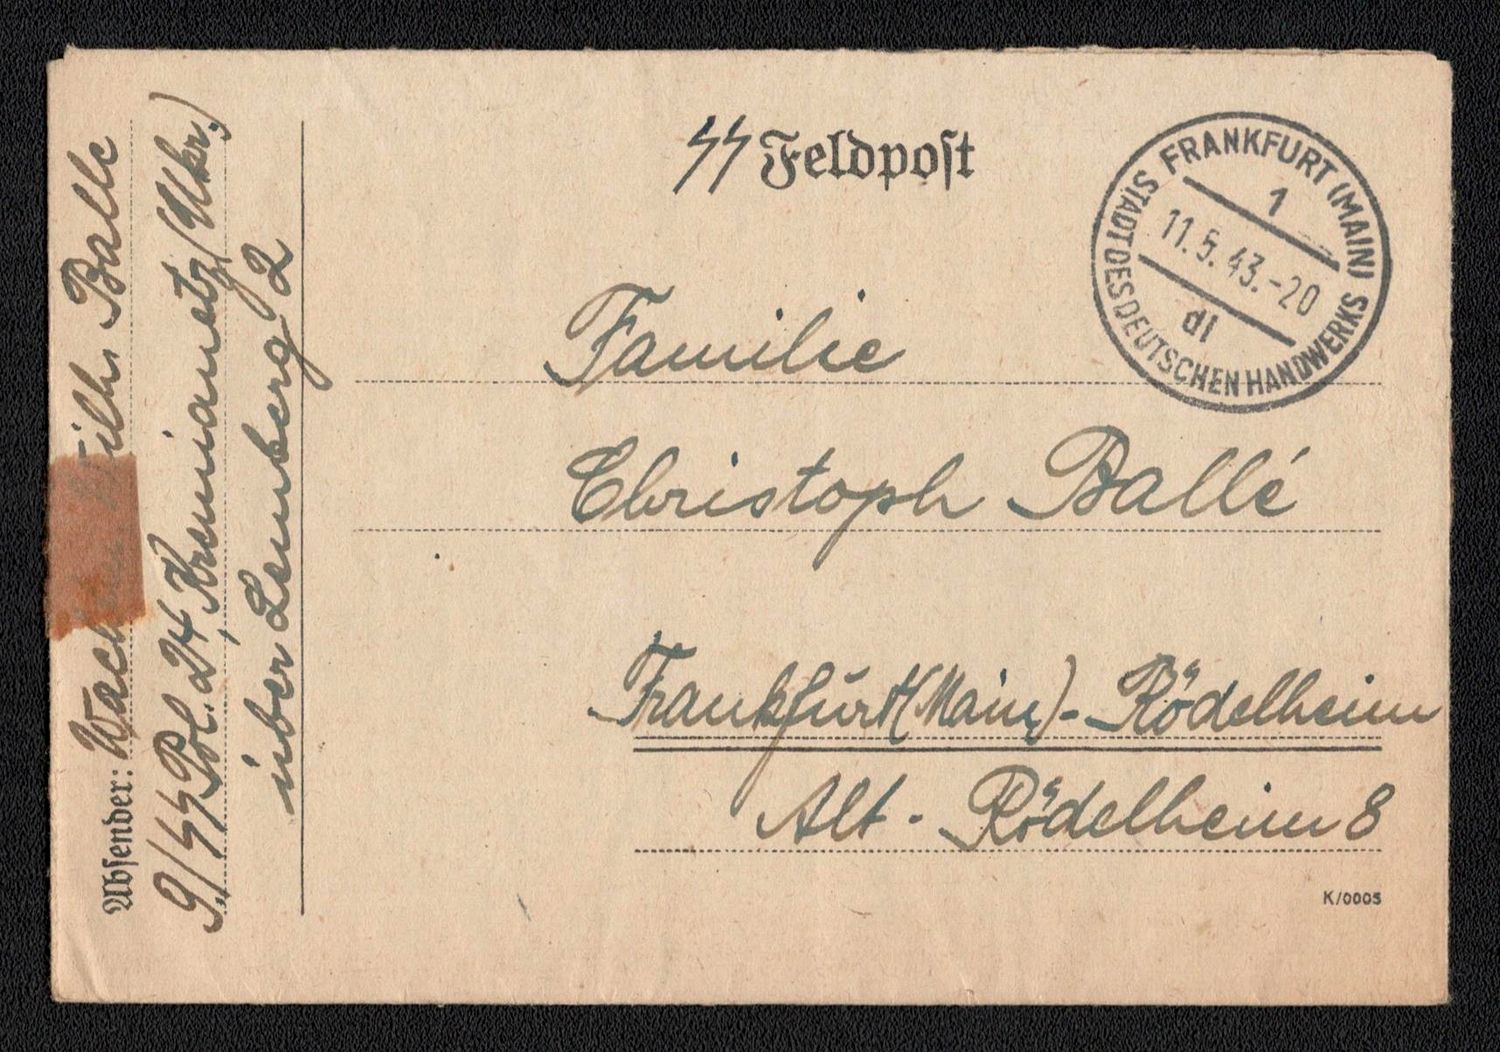 ϟϟ Feldpost
FRANKFURT (MAIN) 1
11.5.43.-20
dl
STADT DES DEUTSCHEN HANDWERKS
Familie
Christoph Ballé
Frankfurt (Main)-Rödelheim
Alt-Rödelheim 8
K/0005
Absender: Wilh. Balle
9./ϟϟ Pol. 24, Kremianetz (Ukr.)
über Lemberg 2